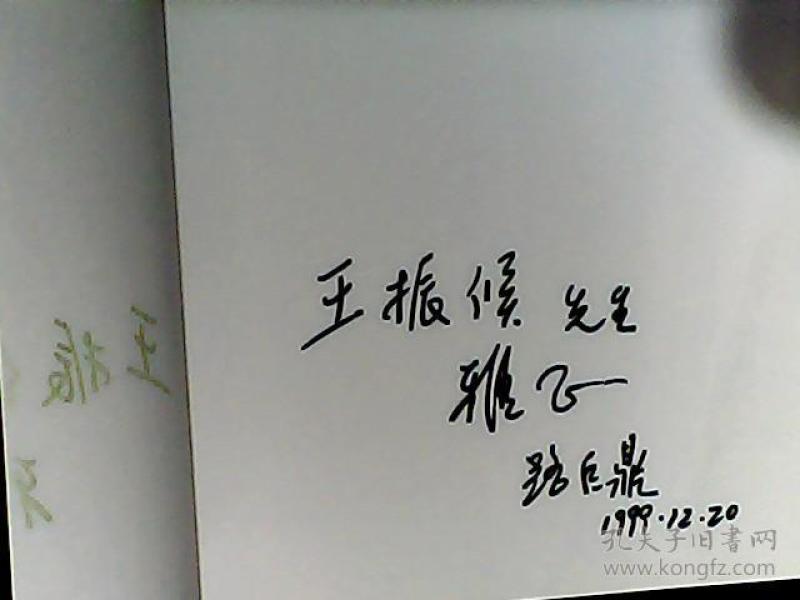 王振候 先生
雅正
路巨鼎
1999.12.20
孔夫子旧書网
www.kongfz.com
王振